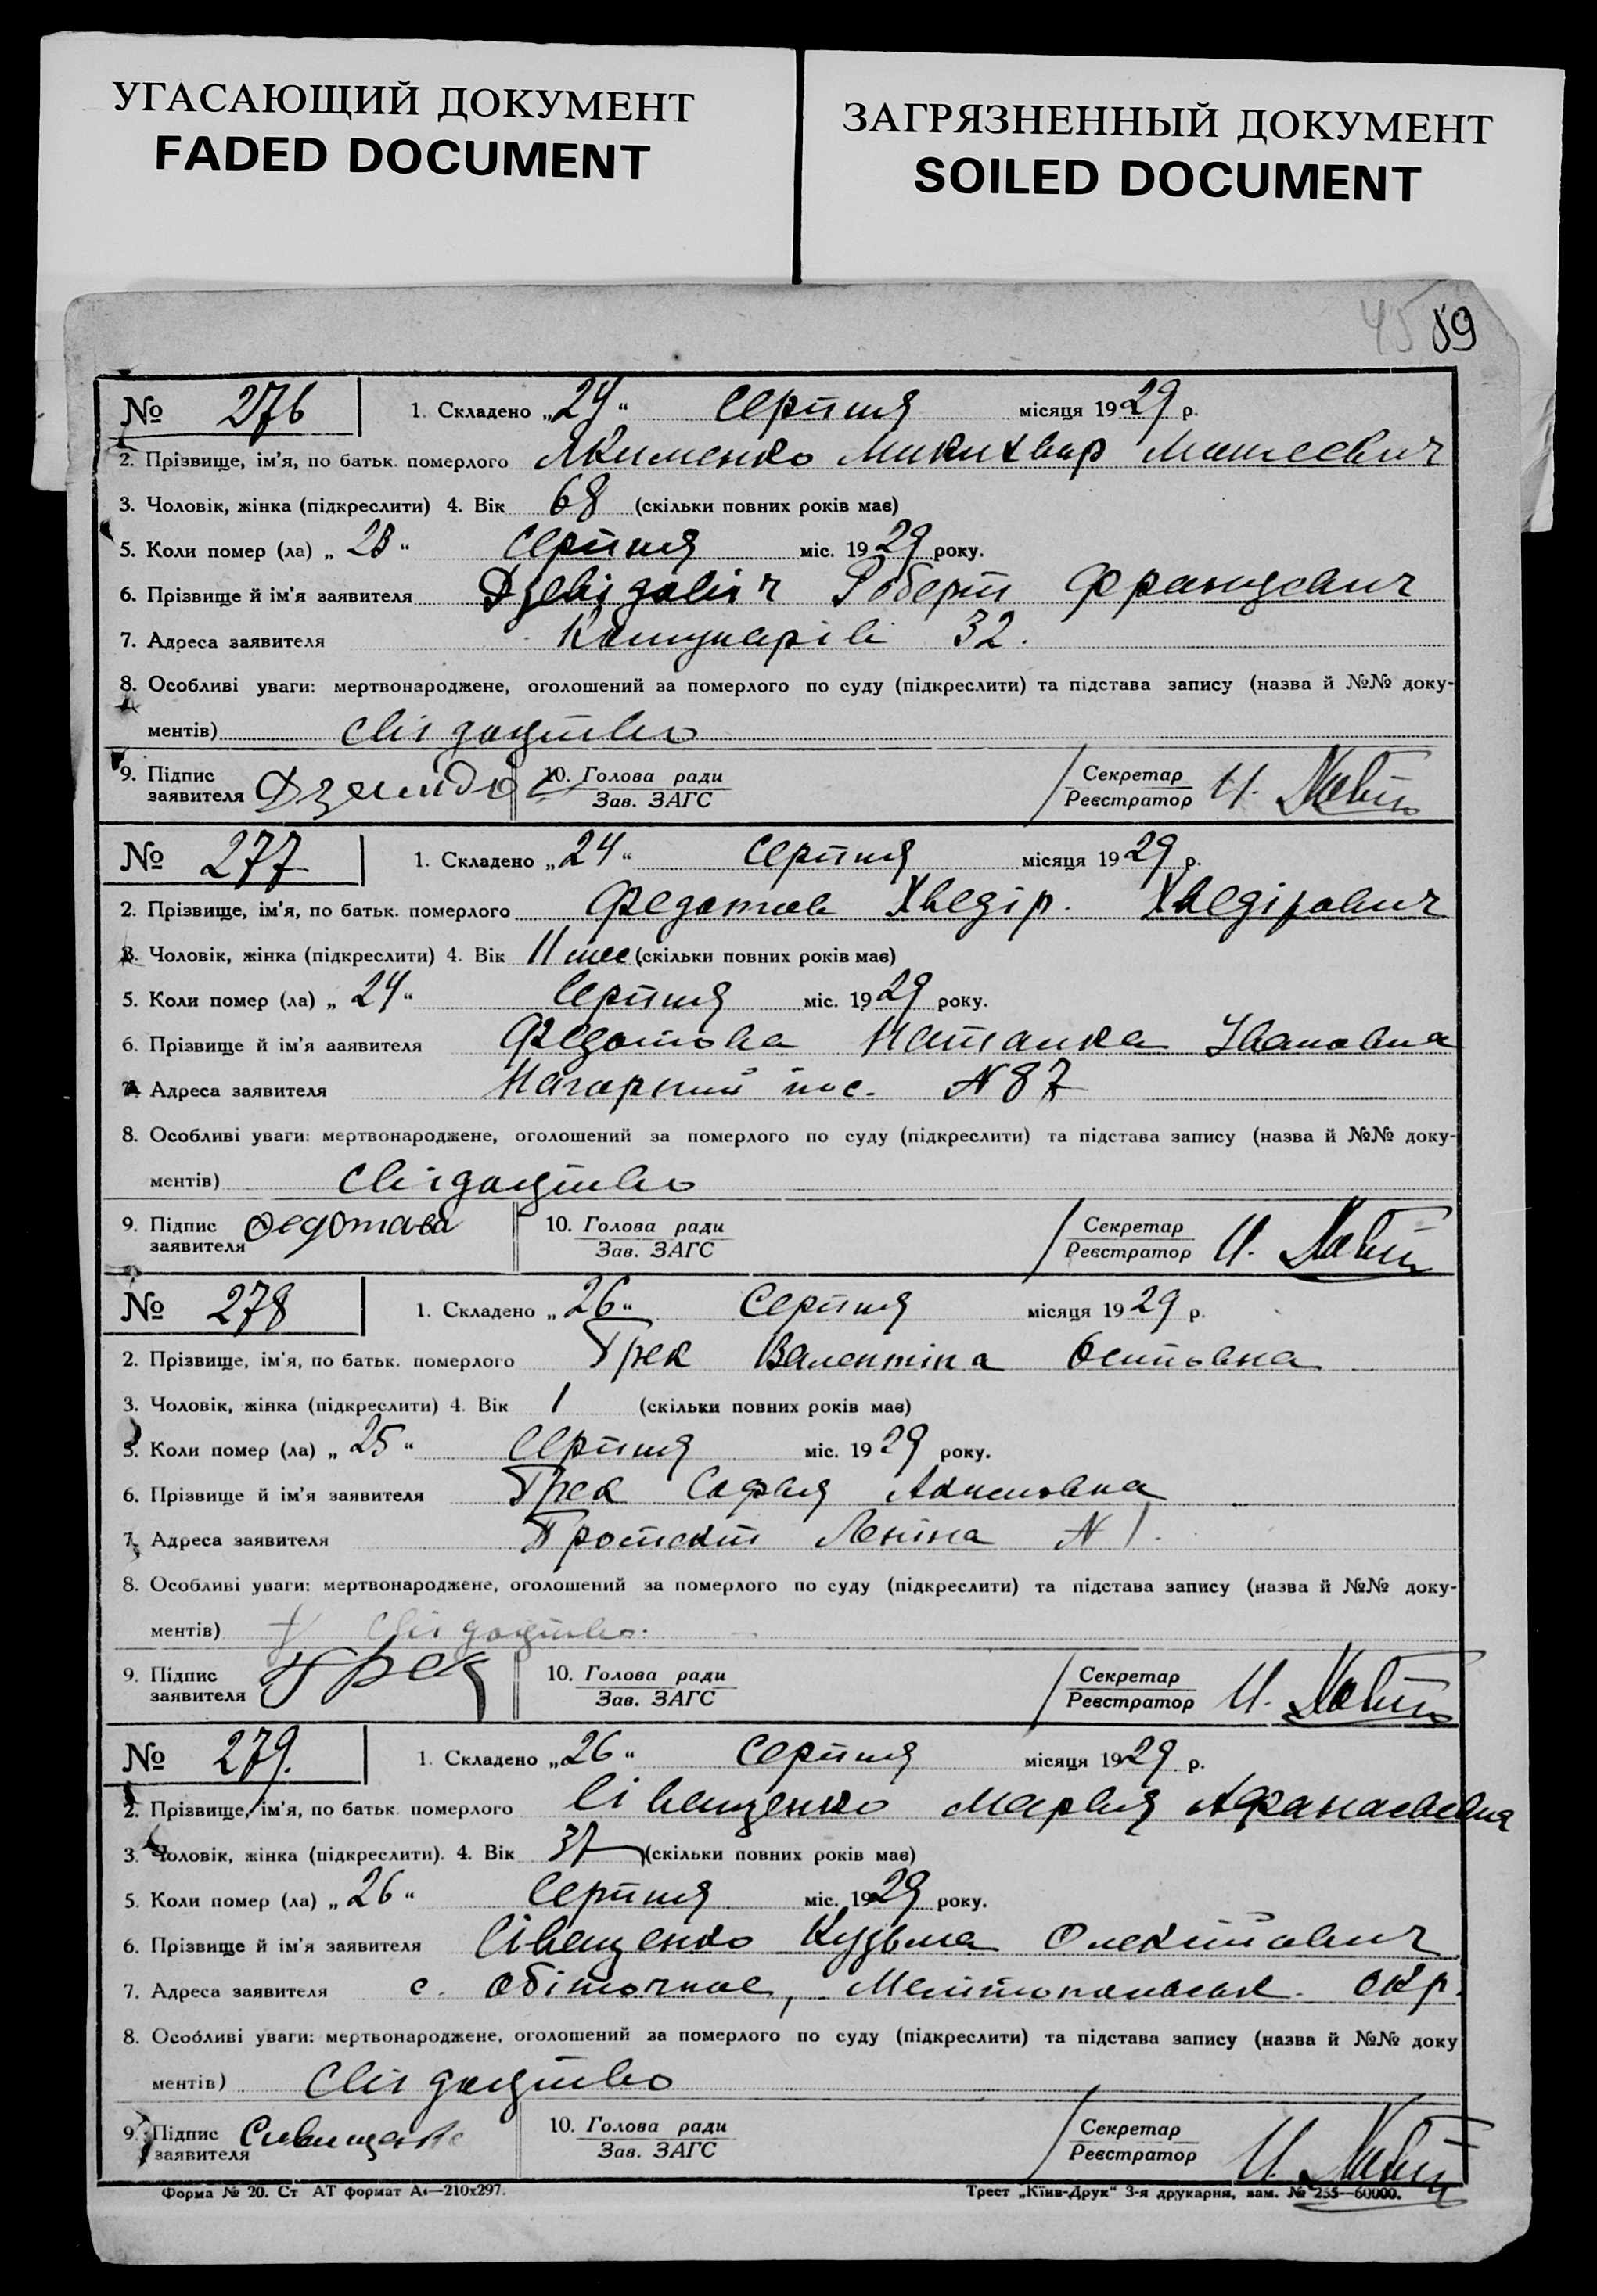 УГАСАЮЩИЙ ДОКУМЕНТ
FADED DOCUMENT
ЗАГРЯЗНЕННЫЙ ДОКУМЕНТ
SOILED DOCUMENT
45 59
№ 276 1. Складено „24“ серпня місяця 1929 р.
2. Прізвище, ім'я, по батьк. померлого Якименко Микихвир
3. Чоловік, жінка (підкреслити) 4. Вік 68 (скільки повних років має)
5. Коли помер (ла) „23“ серпня міс. 1929 року.
6. Прізвище й ім'я заявителя Роберт Францевич
7. Адреса заявителя Комунарів 32.
8. Особливі уваги: мертвонароджене, оголошений за померлого по суду (підкреслити) та підстава запису (назва й №№ доку-
ментів) свідоцтво
9. Підпис заявителя 10. Голова ради Зав. ЗАГС Секретар Реєстратор И.
№ 277 1. Складено „24“ серпня місяця 1929 р.
2. Прізвище, ім'я, по батьк. померлого Федотов Хведір Хведірович
3. Чоловік, жінка (підкреслити) 4. Вік 11 мес (скільки повних років має)
5. Коли помер (ла) „24“ серпня міс. 1929 року.
6. Прізвище й ім'я заявителя Федотова Наталка Ивановна
7. Адреса заявителя Нагорний пос. N 87
8. Особливі уваги: мертвонароджене, оголошений за померлого по суду (підкреслити) та підстава запису (назва й №№ доку-
ментів) свідоцтво
9. Підпис заявителя Федотова 10. Голова ради Зав. ЗАГС Секретар Реєстратор И.
№ 278 1. Складено „26“ серпня місяця 1929 р.
2. Прізвище, ім'я, по батьк. померлого Грек Валентіна Осиповна
3. Чоловік, жінка (підкреслити) 4. Вік 1 (скільки повних років має)
5. Коли помер (ла) „25“ серпня міс. 1929 року.
6. Прізвище й ім'я заявителя Грек Софья Акимовна
7. Адреса заявителя Проспект Леніна N 1.
8. Особливі уваги: мертвонароджене, оголошений за померлого по суду (підкреслити) та підстава запису (назва й №№ доку-
ментів) свідоцтво.
9. Підпис заявителя Грек 10. Голова ради Зав. ЗАГС Секретар Реєстратор И.
№ 279. 1. Складено „26“ серпня місяця 1929 р.
2. Прізвище, ім'я, по батьк. померлого Сіващенко Марья Афанасьевна
3. Чоловік, жінка (підкреслити). 4. Вік 37 (скільки повних років має)
5. Коли помер (ла) „26“ серпня міс. 1929 року.
6. Прізвище й ім'я заявителя Сіващенко Кузьма
7. Адреса заявителя с. Обіточное, окр.
8. Особливі уваги: мертвонароджене, оголошений за померлого по суду (підкреслити) та підстава запису (назва й №№ доку
ментів) свідоцтво
9. Підпис заявителя 10. Голова ради Зав. ЗАГС Секретар Реєстратор И.
Форма № 20. Ст АТ формат А4—210х297. Трест „Київ-Друк“ 3-я друкарня, зам. № 255—60000.